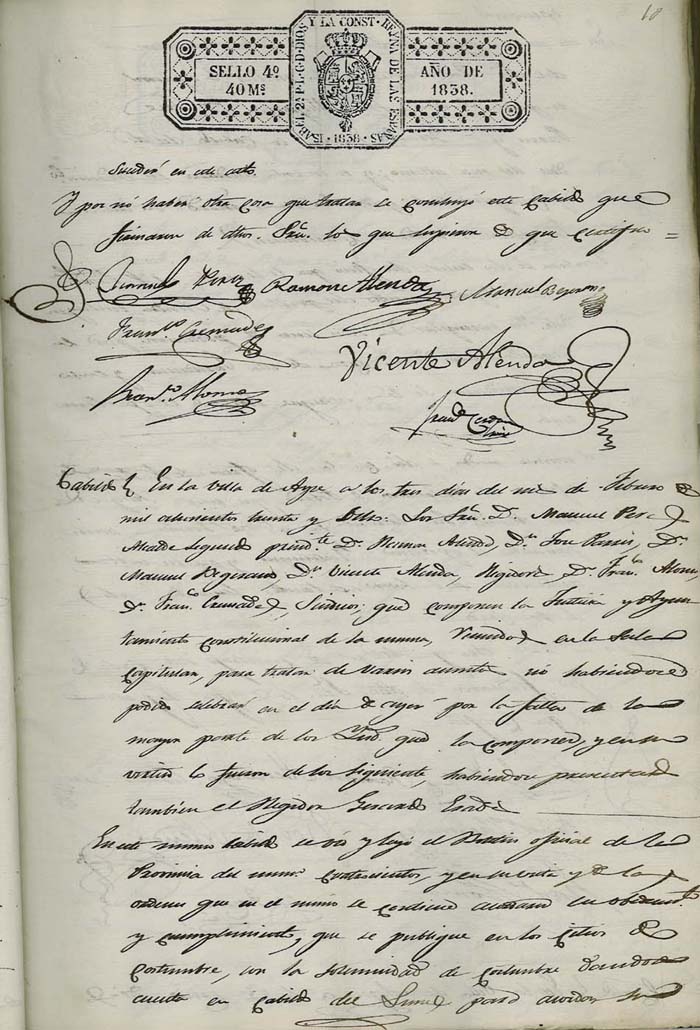 18
ISABEL 2ª P.L.G.D.DIOS Y LA CONST. REYNA DE LAS ESPAÑAS
SELLO 4º
40 Mˢ
AÑO DE
1838.
1838
en este acto.
Y por no haber otra cosa que tratar se concluyó este Cabildo que
firmaron de dhos. Sres. los que supieron de que Certifico =
Ramon Alenda
Manuel Begerano
Franco. Cremades
Vicente Alenda
Franco. Alonso
Cabildo En la villa de Aspe a los tres dias del mes de Febrero
mil ochocientos treinta y Ocho: Los Sres. D. Manuel Perez
Alcalde segundo presidte. Dn. Ramon Alenda, Dn. Jose Pavia, Dn.
Manuel Begerano Dn. Vicente Alenda, Regidores, Dn. Franco. Alonso
Dn. Franco. Cremades, Sindicos; que componen la Justicia y Ayun
tamiento Constitucional de la misma, reunidos en la Sala
Capitular, para tratar de varios asuntos no habiendose
podido celebrar en el dia de ayer por la falta de la
mayor parte de los que la componen, y en su
virtud lo fueron de los siguiente, habiendose presentado
tambien el Regidor Gerardo
En este mismo Cabildo se vio y leyó el Boletin oficial de la
Provincia del numo. y en su vista y de las
ordenes que en el mismo se contiene acordaron su obedecimto.
y cumplimiento, que se publique en los Citios de
Costumbre, con la solemnidad de costumbre dandose
cuenta en Cabildo del Lunes para acordar